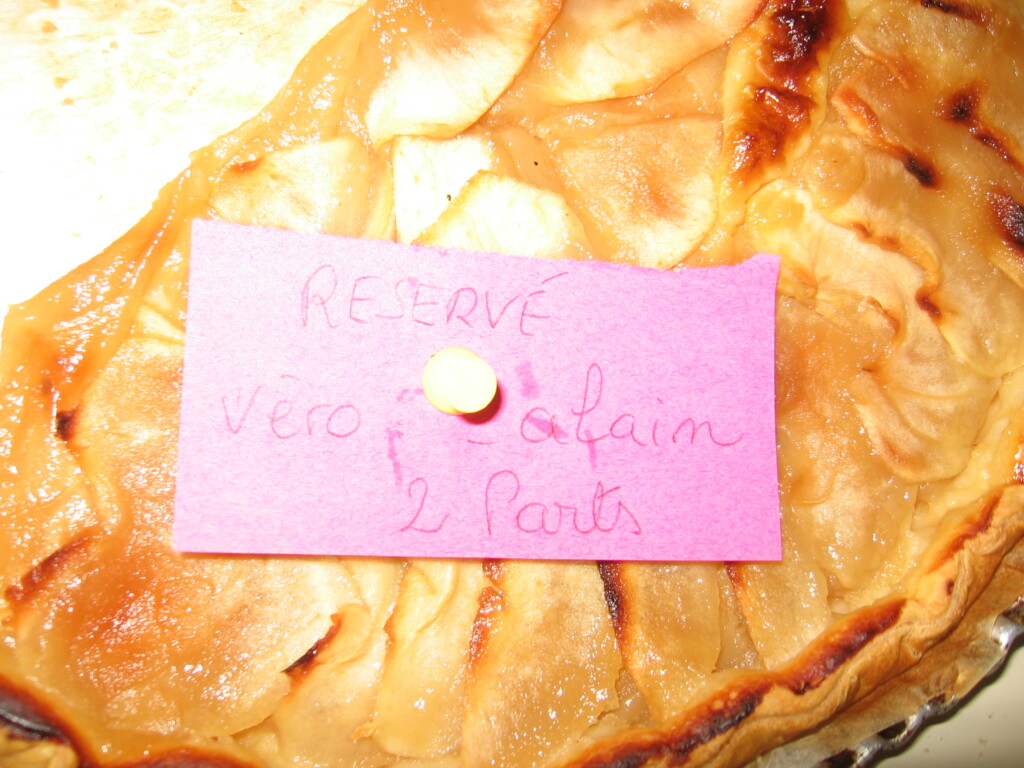 RESERVÉ
Véro - alain
2 Parts